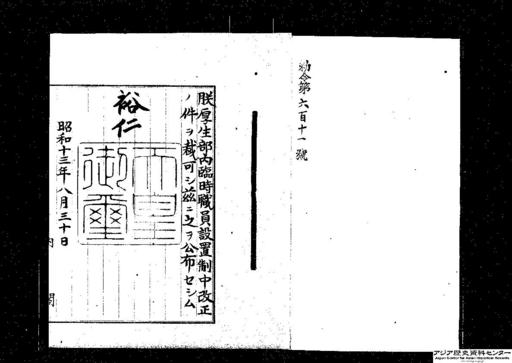 勅令第六百十一號
朕厚生部内臨時職員設置制中改正
ノ件ヲ裁可シ茲ニ之ヲ公布セシム
裕仁
天皇
御璽
昭和十三年八月三十日
内閣
アジア歴史資料センター
Japan Center for Asian Historical Records